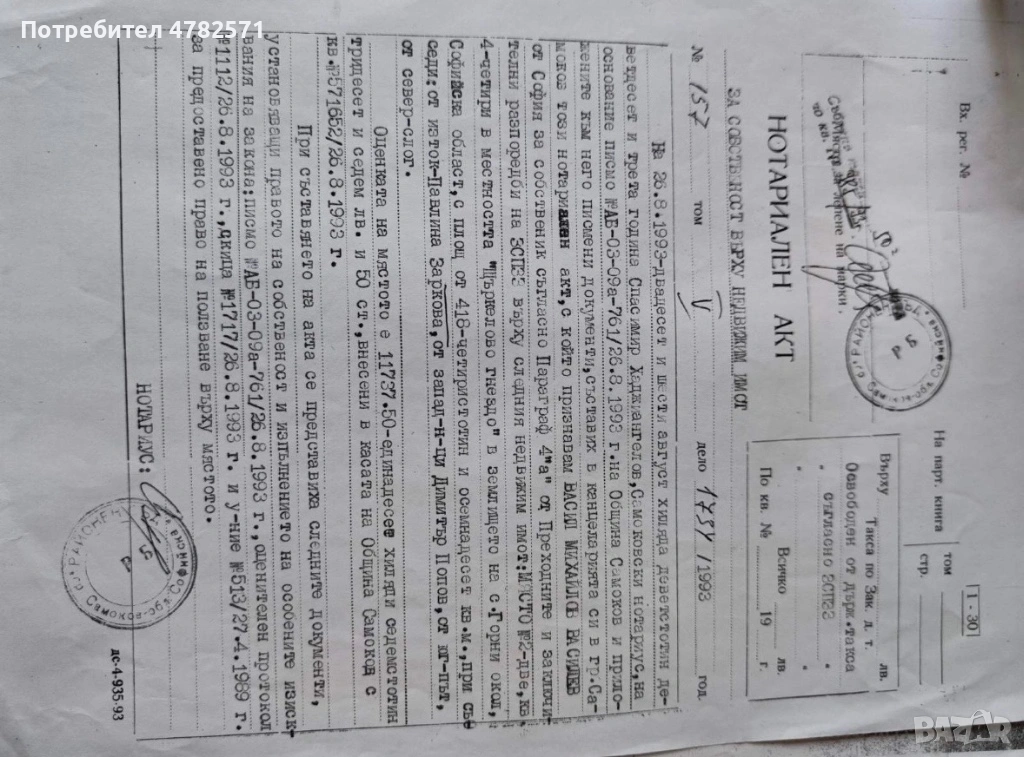 Потребител 4782571
Вх. рег. №
На парт. книга том
стр.
I - 30
НОТАРИАЛЕН АКТ
ЗА СОБСТВЕНОСТ ВЪРХУ НЕДВИЖИМ ИМОТ
Върху лв.
Такса по Зак. д. т.
Освободен от държ.такса
съгласно ЗСПЗЗ
Всичко лв.
По кв. № 19 г.
№ 157 том V дело 1734/1993 год.
На 26.8.1993-двадесет и шести август хиляда деветстотин де-
ветдесет и трета година Спасимир Хаджиангелов,Самоковски нотариус,на
основание писмо №АБ-03-09а-761/26.8.1993 г.на Община Самоков и прило-
жените към него писмени документи,съставих в канцеларията си в гр.Са-
моков този нотариален акт,с който признавам ВАСИЛ МИХАЙЛОВ ВАСИЛЕВ
от София за собственик съгласно Параграф 4"а" от Преходните и заключи-
телни разпоредби на ЗСПЗЗ върху следния недвижим имот:МЯСТО №2-две,кв.
4-четири в местността "Щъркелово гнездо" в землището на с.Горни окол,
Софийска област,с площ от 418-четиристотин и осемнадесет кв.м.,при съ-
седи:от изток-Павлина Заркова,от запад-н-ци Димитър Попов,от юг-път,
от север-слог.
Оценката на мястото е 11737.50-единадесет хиляди седемстотин
тридесет и седем лв. и 50 ст.,внесени в касата на Община Самоков с
кв.№571652/26.8.1993 г.
При съставянето на акта се представиха следните документи,
установяващи правото на собственост и изпълнението на особените изиск-
вания на закона:писмо №АБ-03-09а-761/26.8.1993 г.,оценителен протокол
№1112/26.8.1993 г.,скица №1717/26.8.1993 г. и у-ние №513/27.4.1989 г.
за предоставено право на ползване върху мястото.
НОТАРИУС:
дс-4-935-93
BAZAR